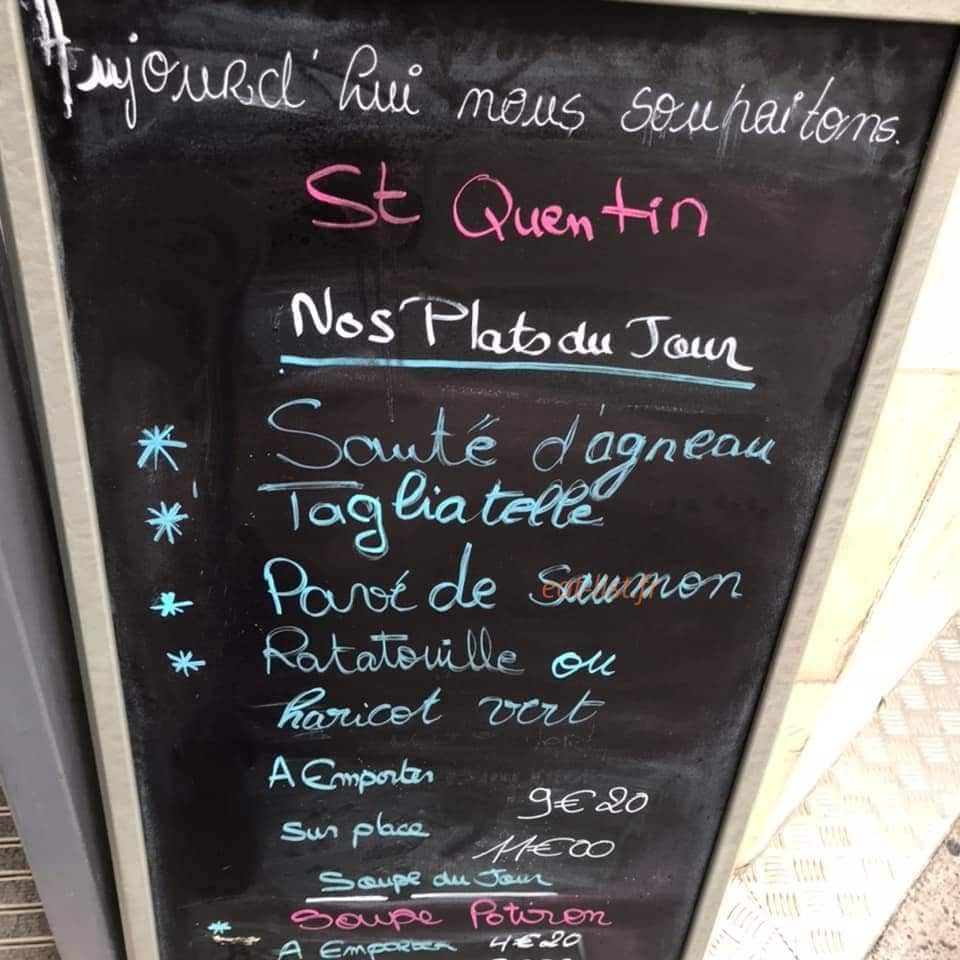 Aujourd'hui nous souhaitons.
St Quentin
Nos Plats du Jour
* Sauté d'agneau
* Tagliatelle
* Pavé de saumon
* Ratatouille ou
haricot vert
A Emporter
9€20
sur place
11€00
Soupe du Jour
* Soupe Potiron
A Emporter 4€20